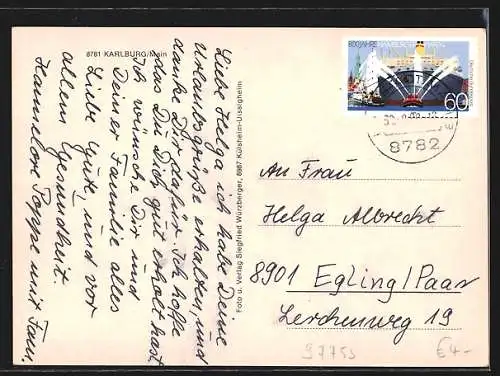 8781 KARLBURG/Main
Liebe Helga ich habe Deine
Urlaubsgrüße erhalten, und
danke Dir dafür. Ich hoffe
das Du Dich gut erholt hast
Ich wünsche Dir und
Deiner Familie alles
Liebe Gute, und vor
allem Gesundheit.
Hannelore Poppe mit Fam.
Foto u. Verlag Siegfried Würzberger, 6987 Külsheim-Uissigheim
800 JAHRE HAMBURGER HAFEN
60
8782
An Frau
Helga Albrecht
8901 Egling/Paar
Lerchenweg 19
97753
€4-